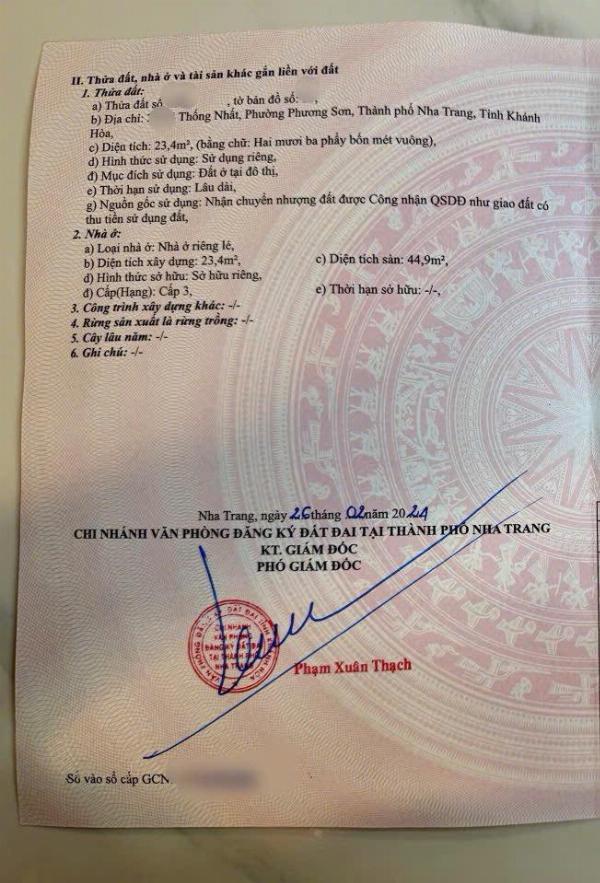 II. Thửa đất, nhà ở và tài sản khác gắn liền với đất
1. Thửa đất:
a) Thửa đất số , tờ bản đồ số: ,
b) Địa chỉ: Thống Nhất, Phường Phương Sơn, Thành phố Nha Trang, Tỉnh Khánh
Hòa,
c) Diện tích: 23,4m², (bằng chữ: Hai mươi ba phẩy bốn mét vuông),
d) Hình thức sử dụng: Sử dụng riêng,
đ) Mục đích sử dụng: Đất ở tại đô thị,
e) Thời hạn sử dụng: Lâu dài,
g) Nguồn gốc sử dụng: Nhận chuyển nhượng đất được Công nhận QSDĐ như giao đất có
thu tiền sử dụng đất,
2. Nhà ở:
a) Loại nhà ở: Nhà ở riêng lẻ,
b) Diện tích xây dựng: 23,4m², c) Diện tích sàn: 44,9m²,
d) Hình thức sở hữu: Sở hữu riêng,
đ) Cấp(Hạng): Cấp 3, e) Thời hạn sở hữu: -/-,
3. Công trình xây dựng khác: -/-
4. Rừng sản xuất là rừng trồng: -/-
5. Cây lâu năm: -/-
6. Ghi chú: -/-
Nha Trang, ngày 26 tháng 02 năm 2024
CHI NHÁNH VĂN PHÒNG ĐĂNG KÝ ĐẤT ĐAI TẠI THÀNH PHỐ NHA TRANG
KT. GIÁM ĐỐC
PHÓ GIÁM ĐỐC
VĂN PHÒNG ĐĂNG KÝ ĐẤT ĐAI TỈNH KHÁNH HÒA
CHI NHÁNH
VĂN PHÒNG
ĐĂNG KÝ ĐẤT ĐAI
TẠI THÀNH PHỐ
NHA TRANG
Phạm Xuân Thạch
Số vào sổ cấp GCN